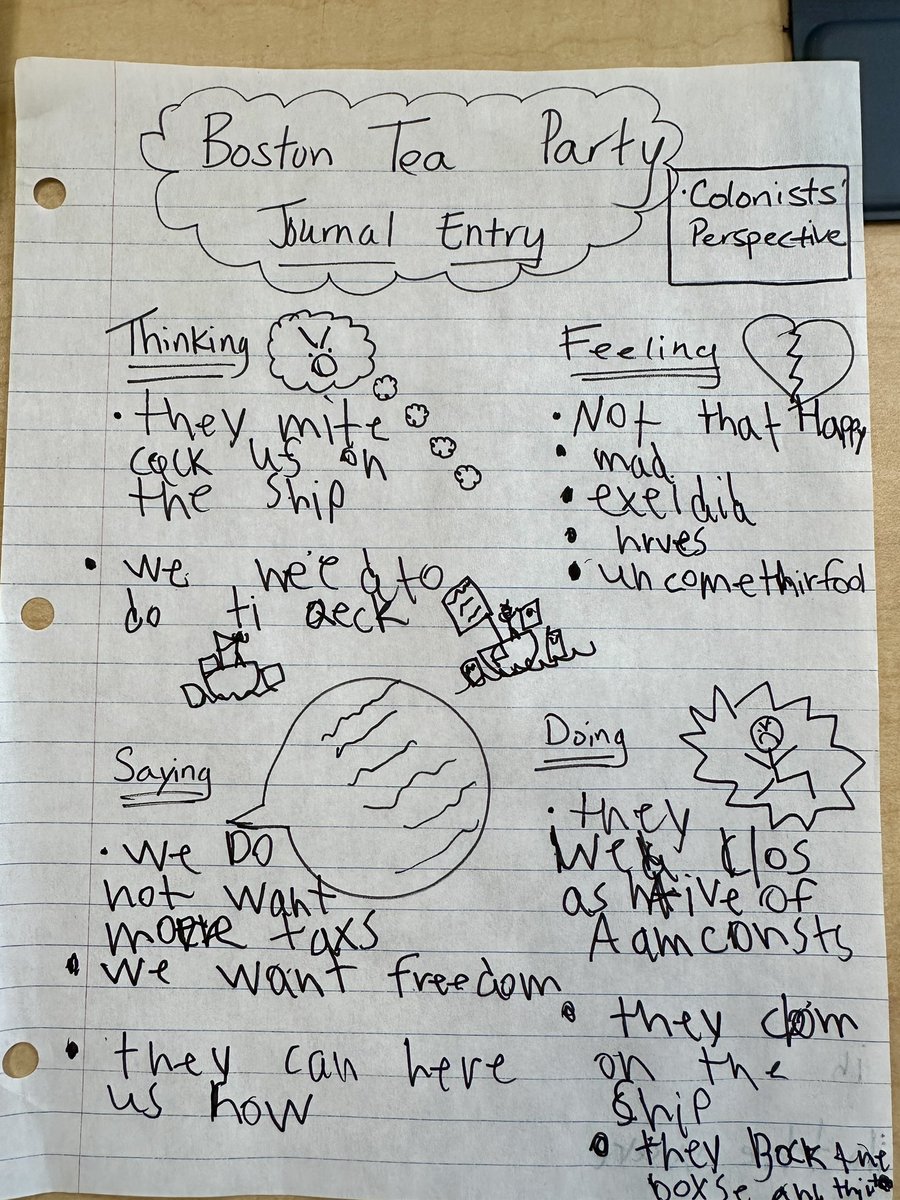 Boston Tea Party
Journal Entry
• Colonists'
Perspective
Thinking
• they mite
cack us on
the Ship
• we need to
do ti qeck
Feeling
• Not that Happy
• mad
• exeldid
• hrves
• uncomethirfool
Saying
• We DO
not want
more taxs
• we want freedom
• they can here
us now
Doing
• they
Wer Clos
as Native of
Aamconsts
• they clom
on the
Ship
• they Bock the
boxse